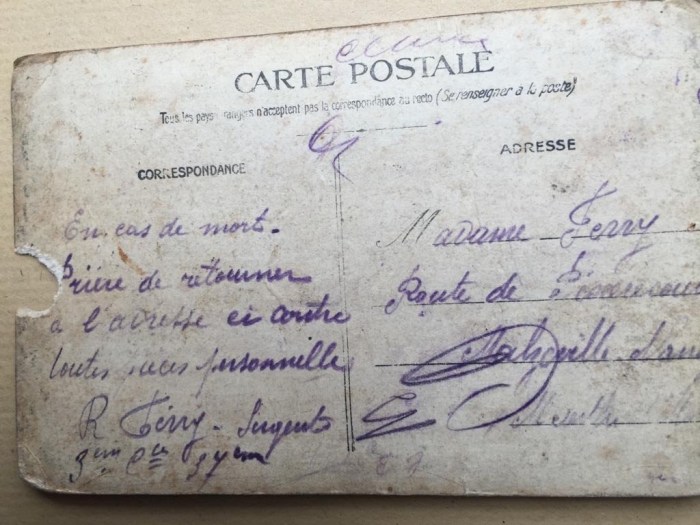 CARTE POSTALE
Tous les pays rangers n'acceptent pas la correspondance au recto (Se renseigner à la poste)
CORRESPONDANCE
En cas de mort.
Prière de retourner
a l'adresse ci contre
toutes personnelles
R Ferry - Sergent
3em 37em
ADRESSE
Madame Ferry
Route de
Malzéville